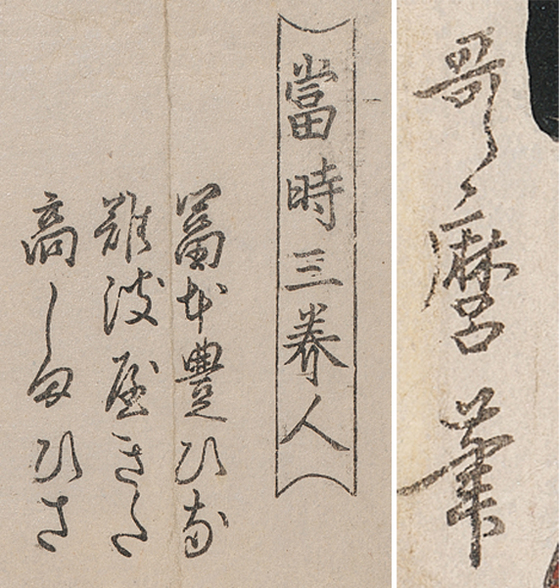 當時三美人
冨本豊ひな
難波屋きた
高しまひさ
哥麿筆